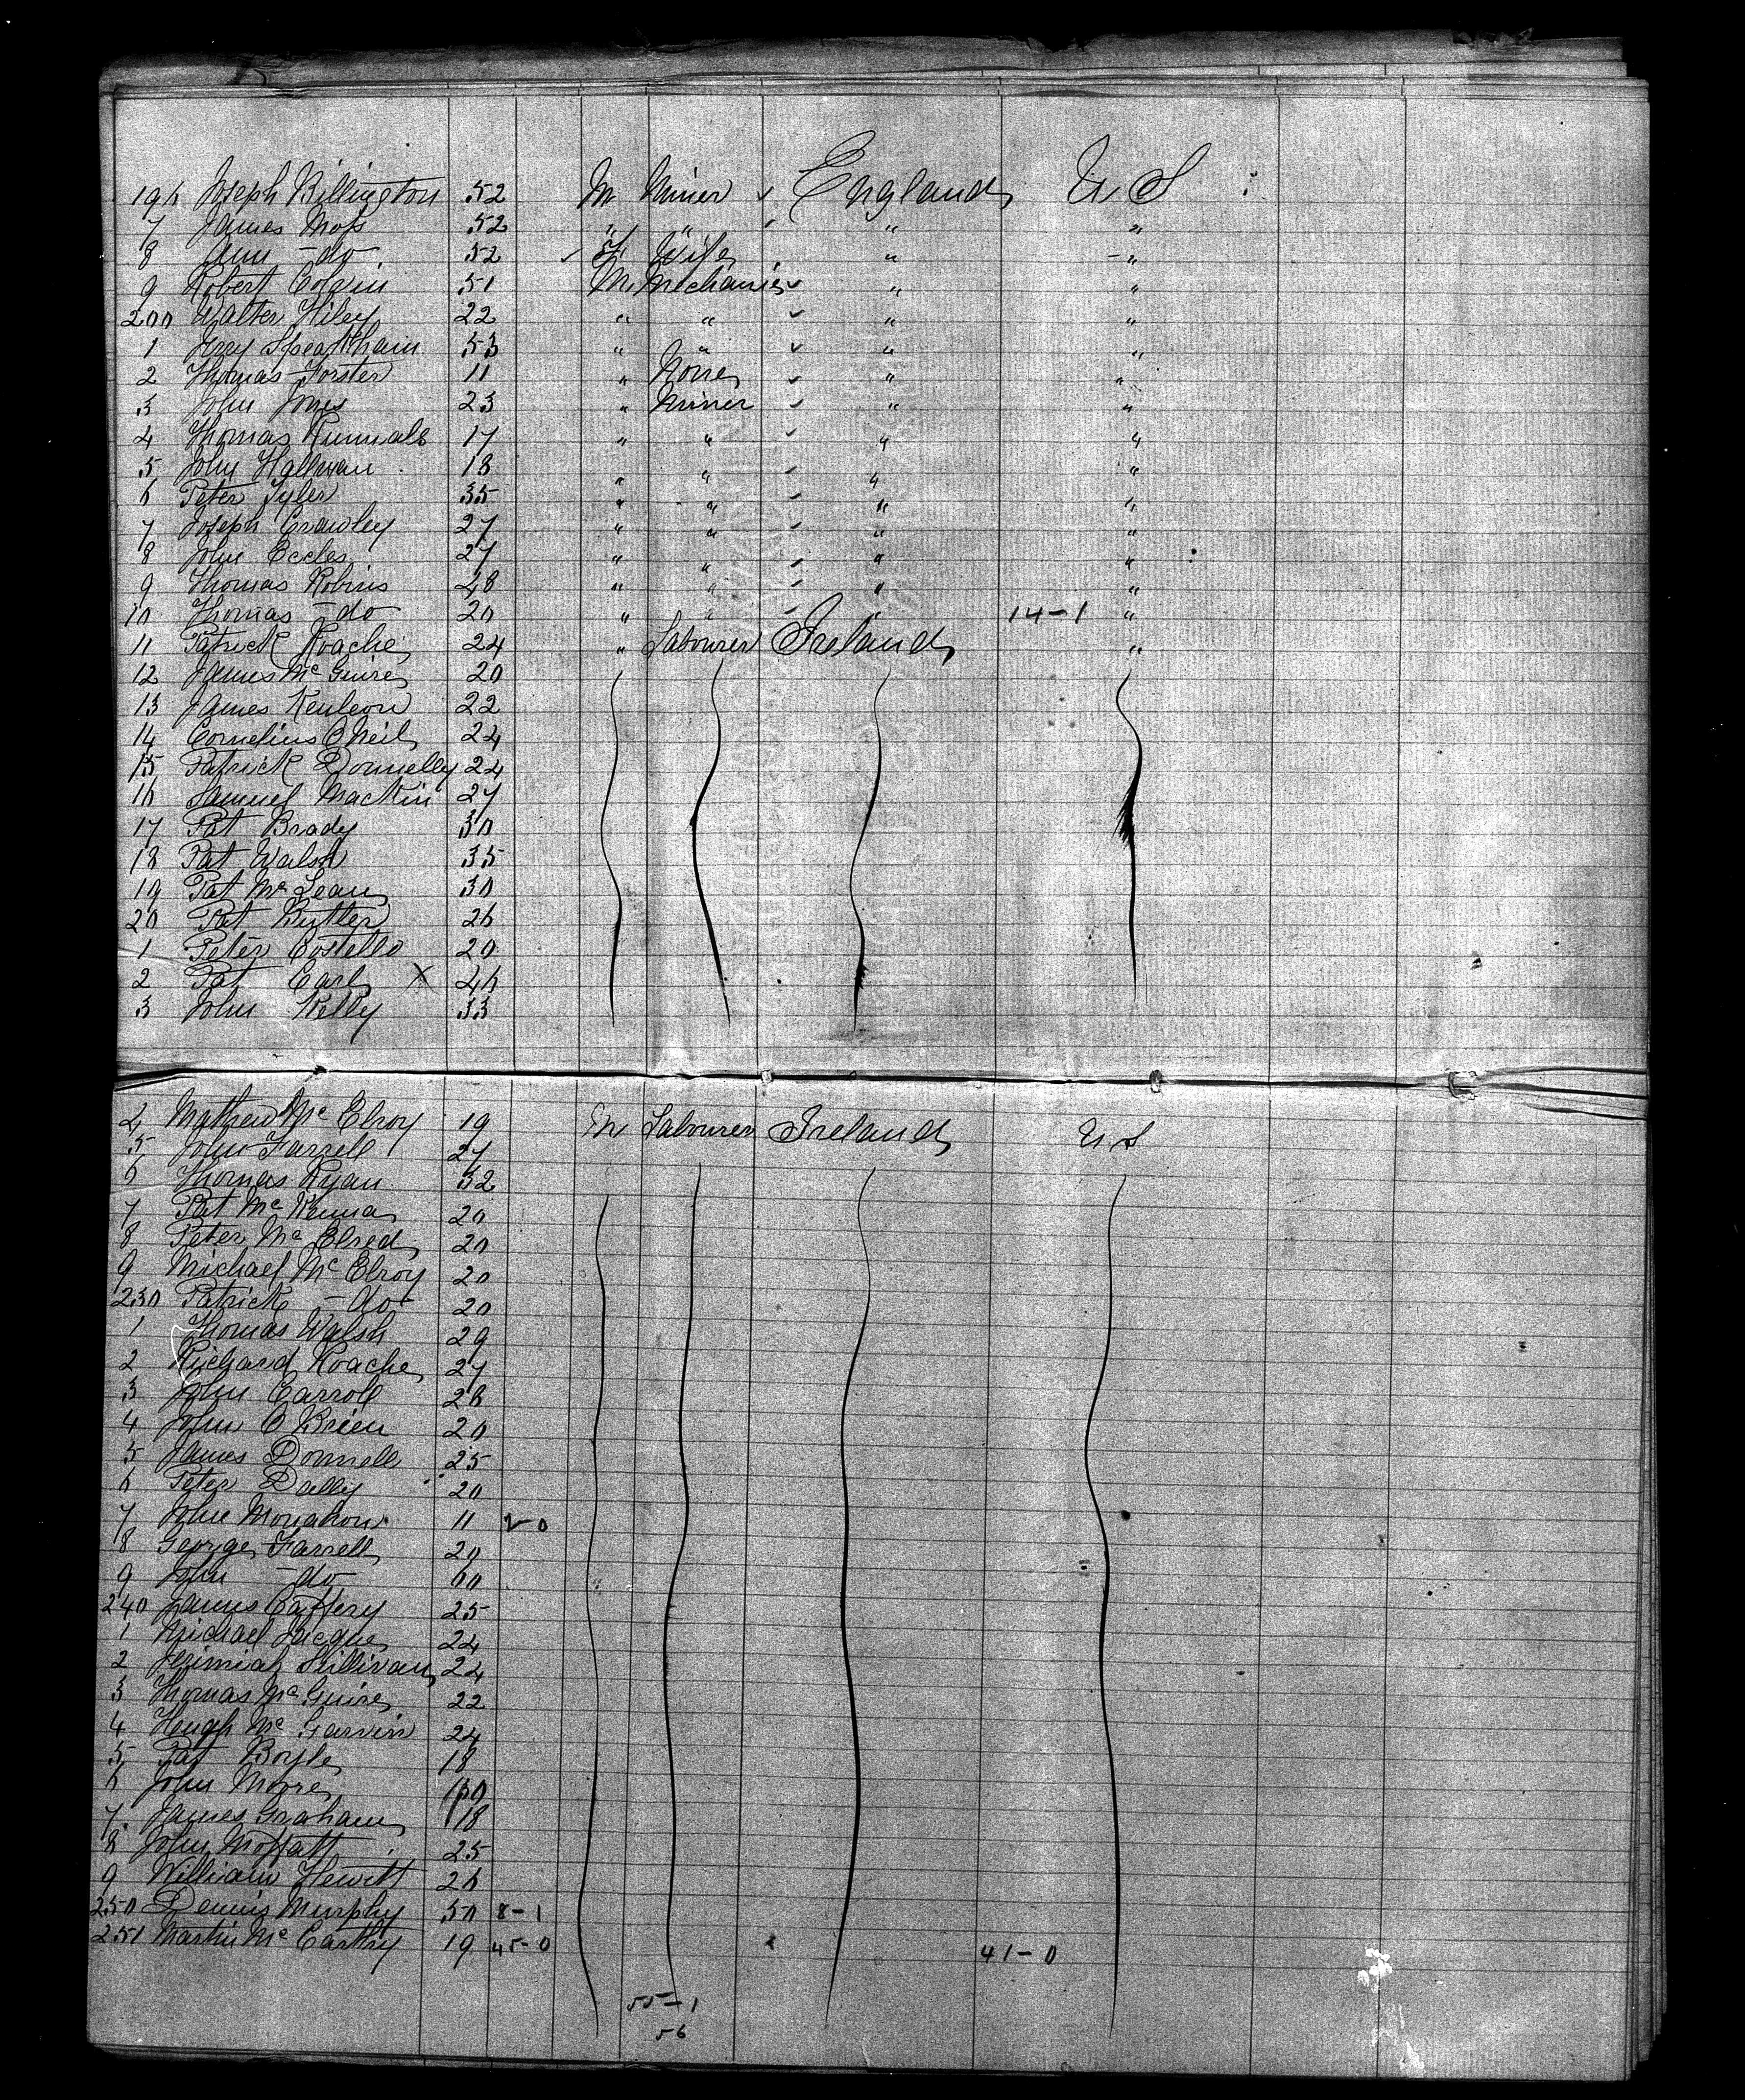 196 Joseph Billington 52 M Miner ✓ England U S
7 James Moss 52 " " " "
8 Ann -do- 52 ✓ F Wife " - "
9 Robert 51 M Mechanic ✓ " "
200 Walter Hiley 22 " " ✓ " "
1 53 " " ✓ " "
2 Thomas Forster 11 " None ✓ " "
3 John Jones 23 " Miner ✓ " "
4 Thomas 17 " " ✓ " "
5 John 18 " " ✓ " "
6 Peter Tyler 35 " " ✓ " "
7 Joseph Crawley 27 " " ✓ " "
8 John Eccles 27 " " ✓ " "
9 Thomas Robins 28 " " ✓ " "
10 Thomas -do 20 " " ✓ " 14-1 "
11 Patrick Roache 24 " Labourer Ireland "
12 James McGuire 20
13 James 22
14 Cornelius O Neil 24
15 Patrick Donnelly 24
16 Samuel Mackin 27
17 Pat Brady 30
18 Pat Walsh 35
19 Pat McLean 30
20 Pat Butler 26
1 Peter Costello 20
2 Pat Carl X 46
3 John Kelly 33
4 Mathew McElroy 19 M Labourer Ireland U S
5 John Farrell 27
6 Thomas Ryan 32
7 Pat McKenna 20
8 Peter McElred 20
9 Michael McElroy 20
230 Patrick -do- 20
1 Thomas Walsh 29
2 Richard Roache 27
3 John Carroll 28
4 John O Brien 20
5 James Donnell 25
6 Peter Dally 20
7 John Monahon 11 2-0
8 George Farrell 20
9 John -do- 60
240 James Caffery 25
1 Michael 24
2 Jeremiah Sullivan 24
3 Thomas McGuire 22
4 Hugh McGarvin 24
5 Pat Boyle 18
6 John Moore
7 James Graham 18
8 John Moffatt 25
9 William Hewitt 26
250 Dennis Murphy 50 8-1
251 Martin McCarthy 19 45-0 41-0
55-1
56